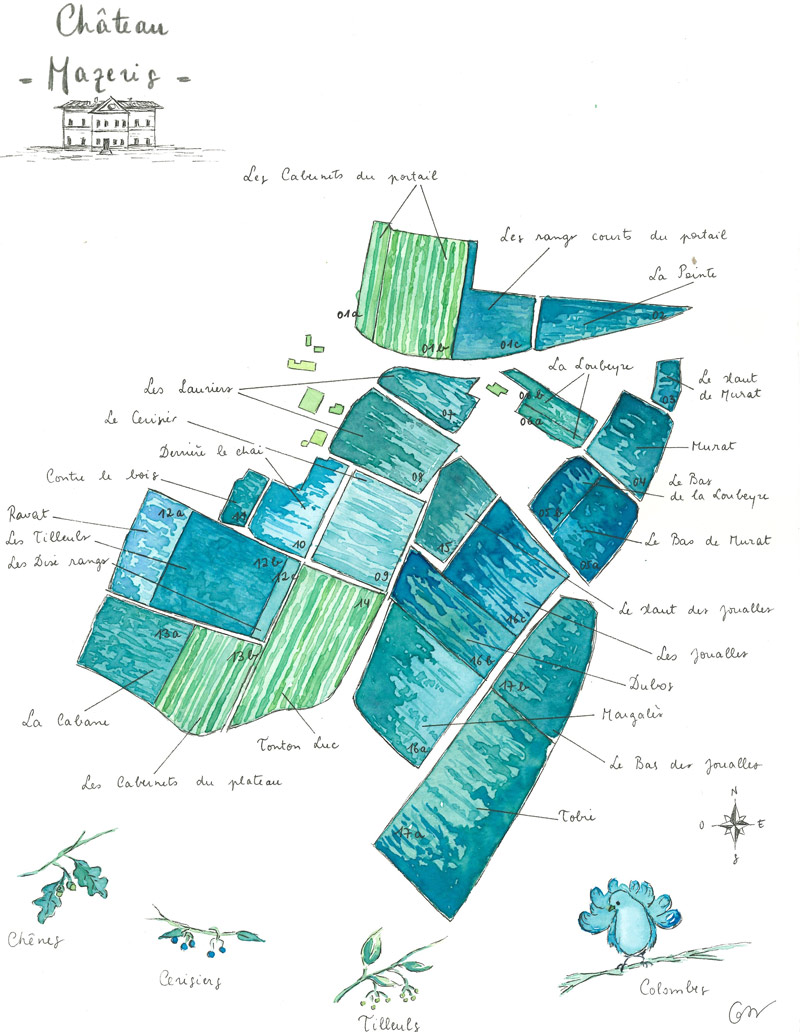 Château
- Mazeris -
Les Cabernets du portail
Les rangs courts du portail
La Pointe
01a
01b
01c
02
La Loubeyre
Les Lauriers
Le haut
de Murat
03
06b
06a
07
Le Cerisier
Murat
Derrière le chai
08
Contre le bois
Le Bas
de la Loubeyre
04
Ravat
12a
11
05b
Les Tilleuls
10
15
Le Bas de Murat
Les Dix rangs
12b
12c
09
05a
14
Le Haut des Joualles
16c
13a
13b
Les Joualles
16b
Dubos
17b
La Cabane
Margalès
Tonton Luc
16a
Le Bas des Joualles
Les Cabernets du plateau
N
O
E
S
17a
Chênes
Cerisiers
Tilleuls
Colombes